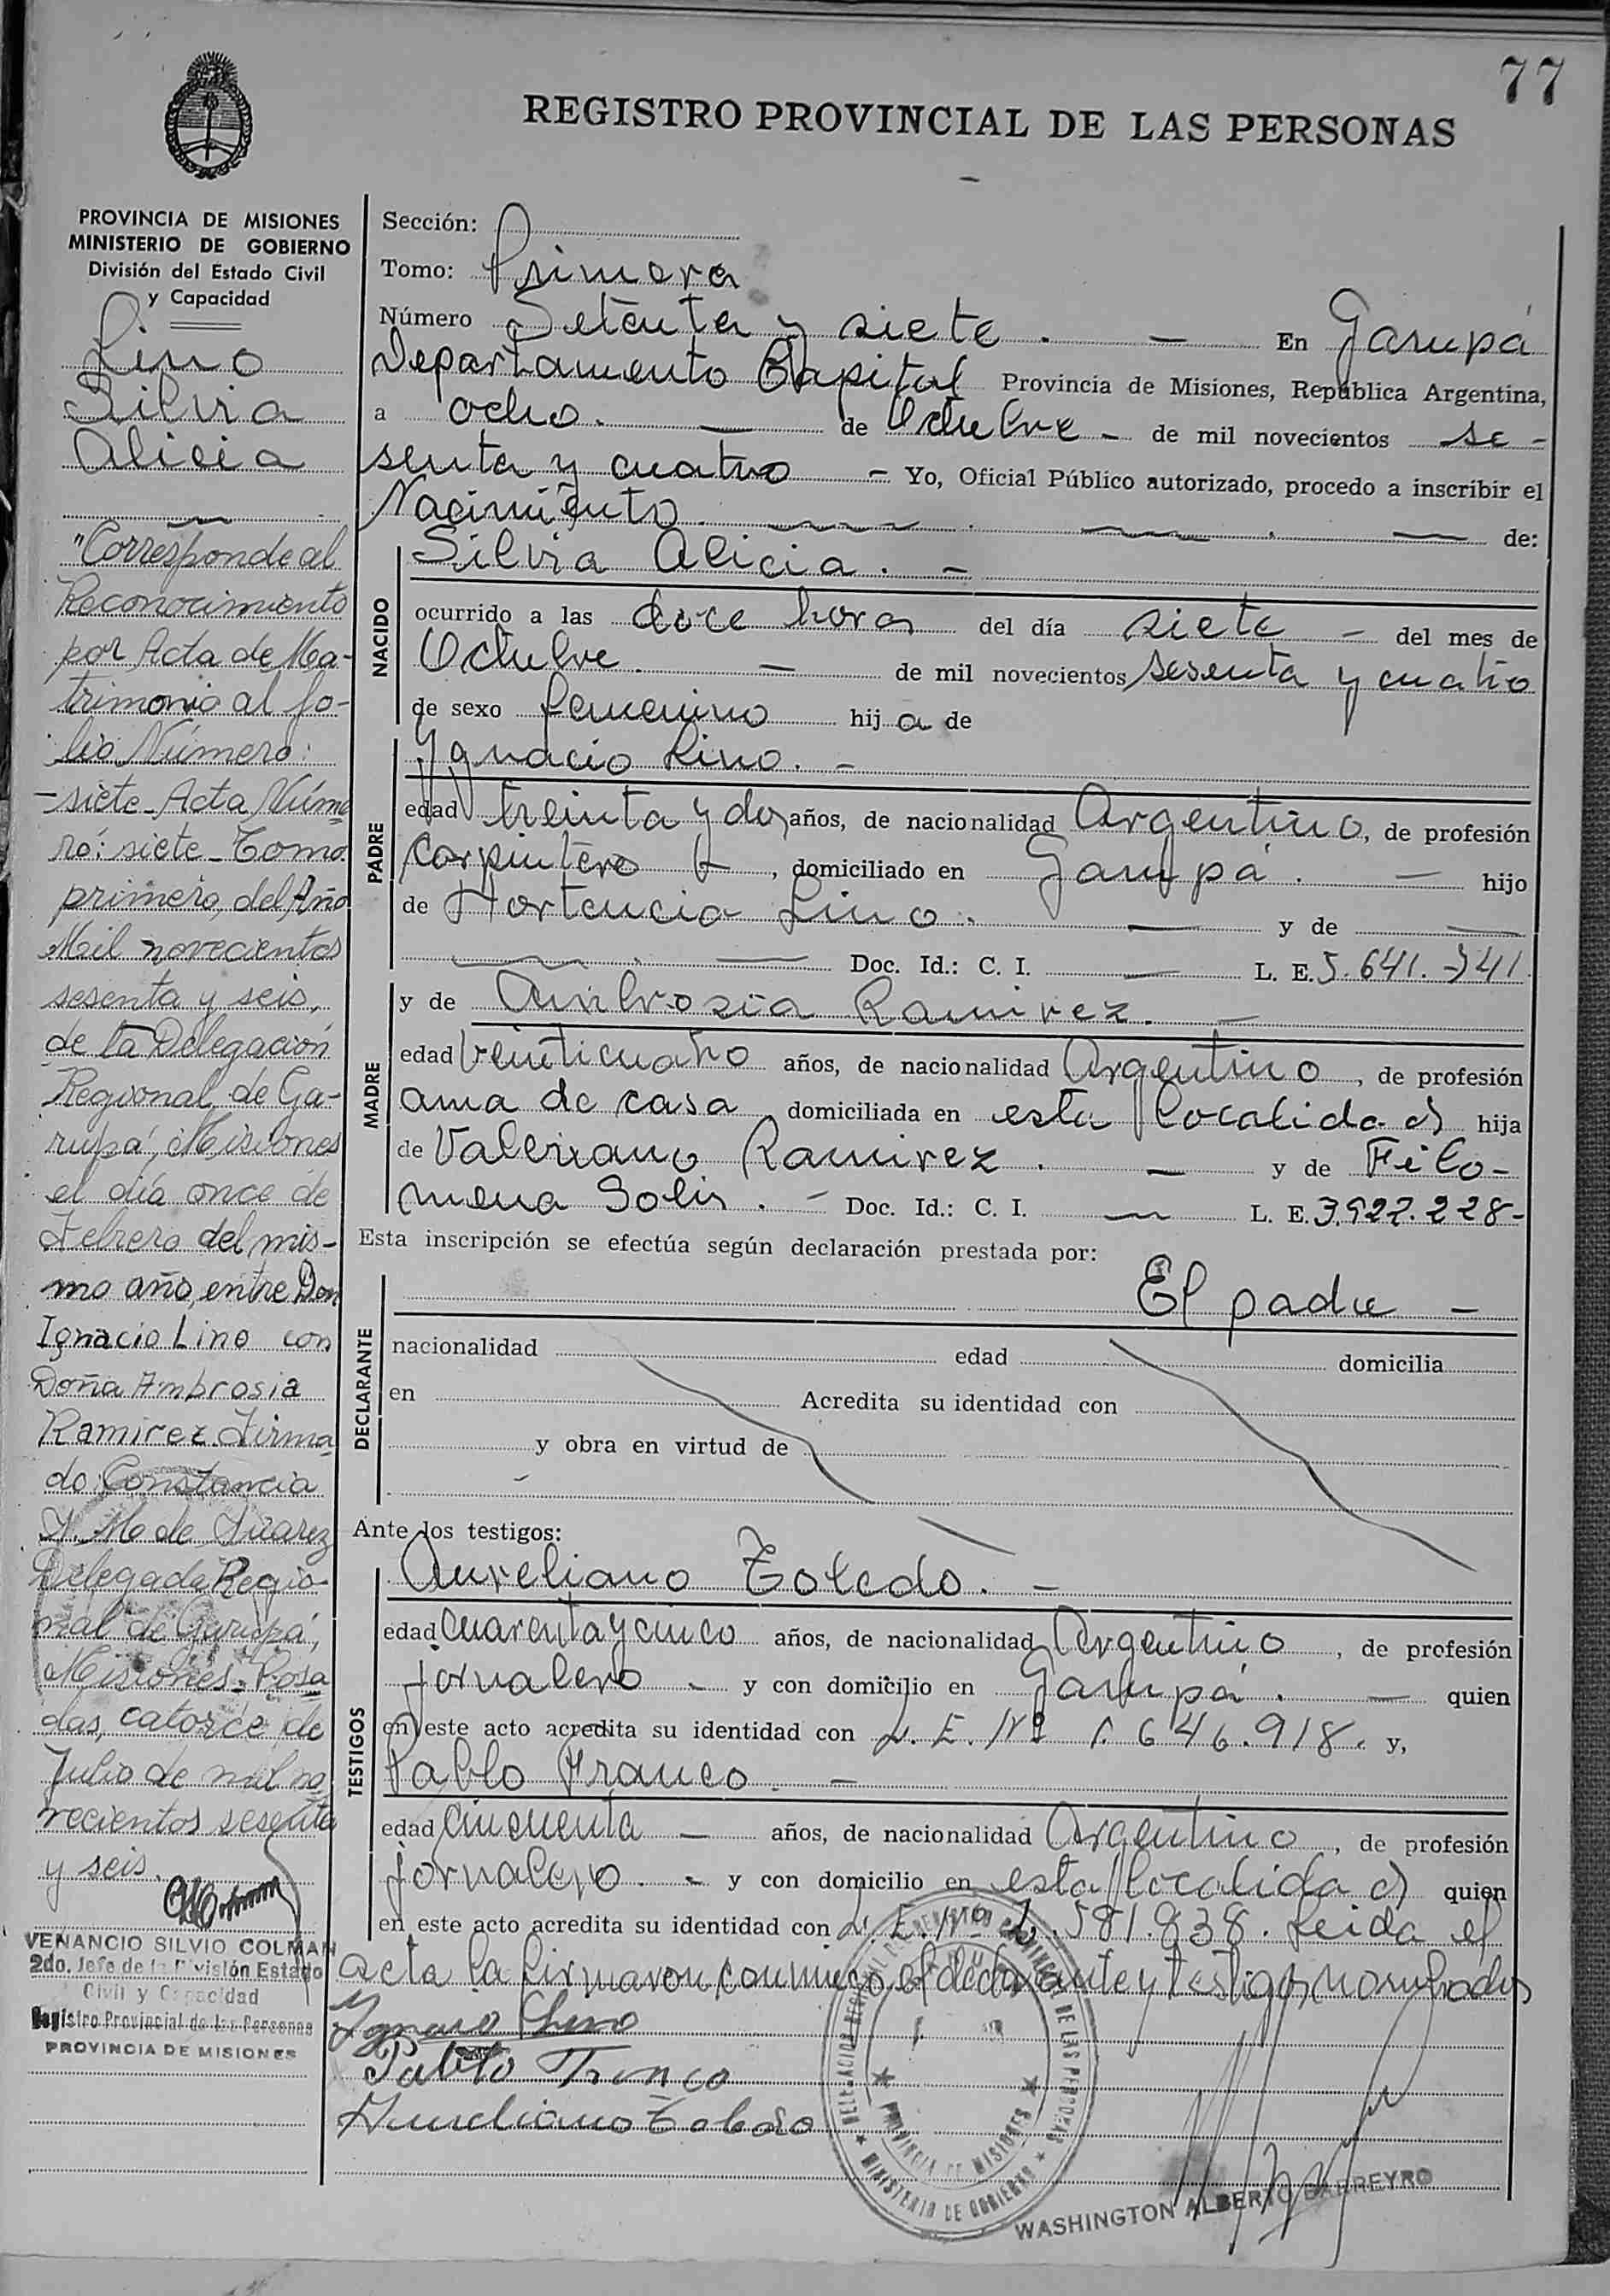 77
REGISTRO PROVINCIAL DE LAS PERSONAS
PROVINCIA DE MISIONES
MINISTERIO DE GOBIERNO
División del Estado Civil
y Capacidad
Lino
Silvia
Alicia
"Corresponde al
Reconocimiento
por Acta de Ma-
trimonio al fo-
lio Número:
-siete- Acta Núme
ro: siete- Tomo
primero, del Año
Mil novecientos
sesenta y seis,
de la Delegación
Regional de Ga-
rupá, Misiones
el día once de
Febrero del mis-
mo año, entre Don
Ignacio Lino con
Doña Ambrosia
Ramirez. Firma
do: Constancia
de Suarez
Delegada Regio-
nal de Garupá,
Misiones. Posa
das, catorce de
Julio de mil no
vecientos sesenta
y seis.
VENANCIO SILVIO COLMAN
2do. Jefe de la División Estado
Civil y Capacidad
Registro Provincial de las Personas
PROVINCIA DE MISIONES
Sección:
Tomo: Primera
Número Setenta y siete. — En Garupá
Departamento Capital Provincia de Misiones, República Argentina,
a ocho. — de Octubre - de mil novecientos se-
senta y cuatro - Yo, Oficial Público autorizado, procedo a inscribir el
Nacimiento de:
NACIDO
Silvia Alicia. -
ocurrido a las doce horas del día siete - del mes de
Octubre. — de mil novecientos sesenta y cuatro
de sexo femenino hij a de
PADRE
Ygnacio Lino. -
edad treinta y dos años, de nacionalidad Argentino, de profesión
Carpintero, domiciliado en Garupá. — hijo
de Hortencia Lino. — y de —
Doc. Id.: C. I. — L. E. 5.641.741
MADRE
y de Ambrosia Ramirez. —
edad veinticuatro años, de nacionalidad Argentino, de profesión
ama de casa domiciliada en esta localidad hija
de Valeriano Ramirez. — y de Filo-
mena Solis. - Doc. Id.: C. I. — L. E. 3.922.228-
Esta inscripción se efectúa según declaración prestada por:
DECLARANTE
El padre -
nacionalidad edad domicilia
en Acredita su identidad con
y obra en virtud de
Ante los testigos:
TESTIGOS
Aureliano Toledo. -
edad cuarenta y cinco años, de nacionalidad Argentino, de profesión
jornalero - y con domicilio en Garupá. — quien
en este acto acredita su identidad con L. E. Nº 1.646.918. y,
Pablo Franco. -
edad cincuenta — años, de nacionalidad Argentino, de profesión
jornalero. - y con domicilio en esta localidad quien
en este acto acredita su identidad con L. E. Nº 2.581.838. Leida el
acta la firmaron conmigo el declarante y testigos nombrados
Ygnacio Lino
Pablo Franco
Aureliano Toledo
DELEGACION REGIONAL DE REGISTRO PROVINCIAL DE LAS PERSONAS
GARUPA
PROVINCIA DE MISIONES
MINISTERIO DE GOBIERNO
WASHINGTON ALBERTO BARREYRO